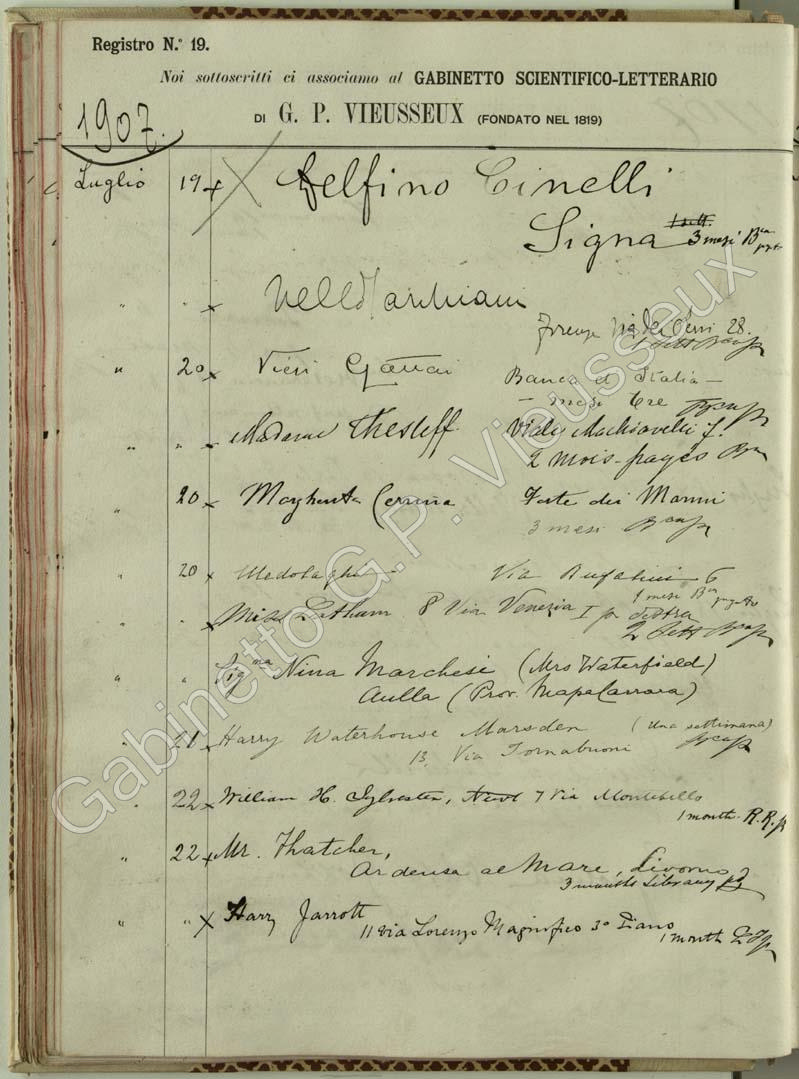 Registro N.º 19.
Noi sottoscritti ci associamo al GABINETTO SCIENTIFICO-LETTERARIO
DI G. P. VIEUSSEUX (FONDATO NEL 1819)
1907.
Luglio 19 x Delfino Cinelli
Signa 1 sett. 3 mesi
" " x Nello
Firenze Via dei Servi 28.
" 20 x Vieri
Banca d'Italia –
– mesi tre
" " Madame Thesleff Viale Machiavelli 7.
2 mois – payés
" 20 x Margherita Forte dei Marmi
3 mesi
" 20 x Medolaghi – Via Bufalini 6
1 mese
" Miss Latham 8 Via Venezia I p. destra
2 Sett
" " Sig.na Nina Marchesi (Mrs Waterfield)
Aulla (Prov. Massa Carrara)
" 21 x Harry Waterhouse Marsden (Una settimana)
13, Via Tornabuoni
" 22 x William H. Sylvester, 7 Via Montebello
1 month R. R.
" 22 x Mr. Thatcher,
Ardenza al Mare, Livorno
3 months Library
" " x Harry Jarrott
11 Via Lorenzo Magnifico 3º Piano
1 month
Gabinetto G.P. Vieusseux